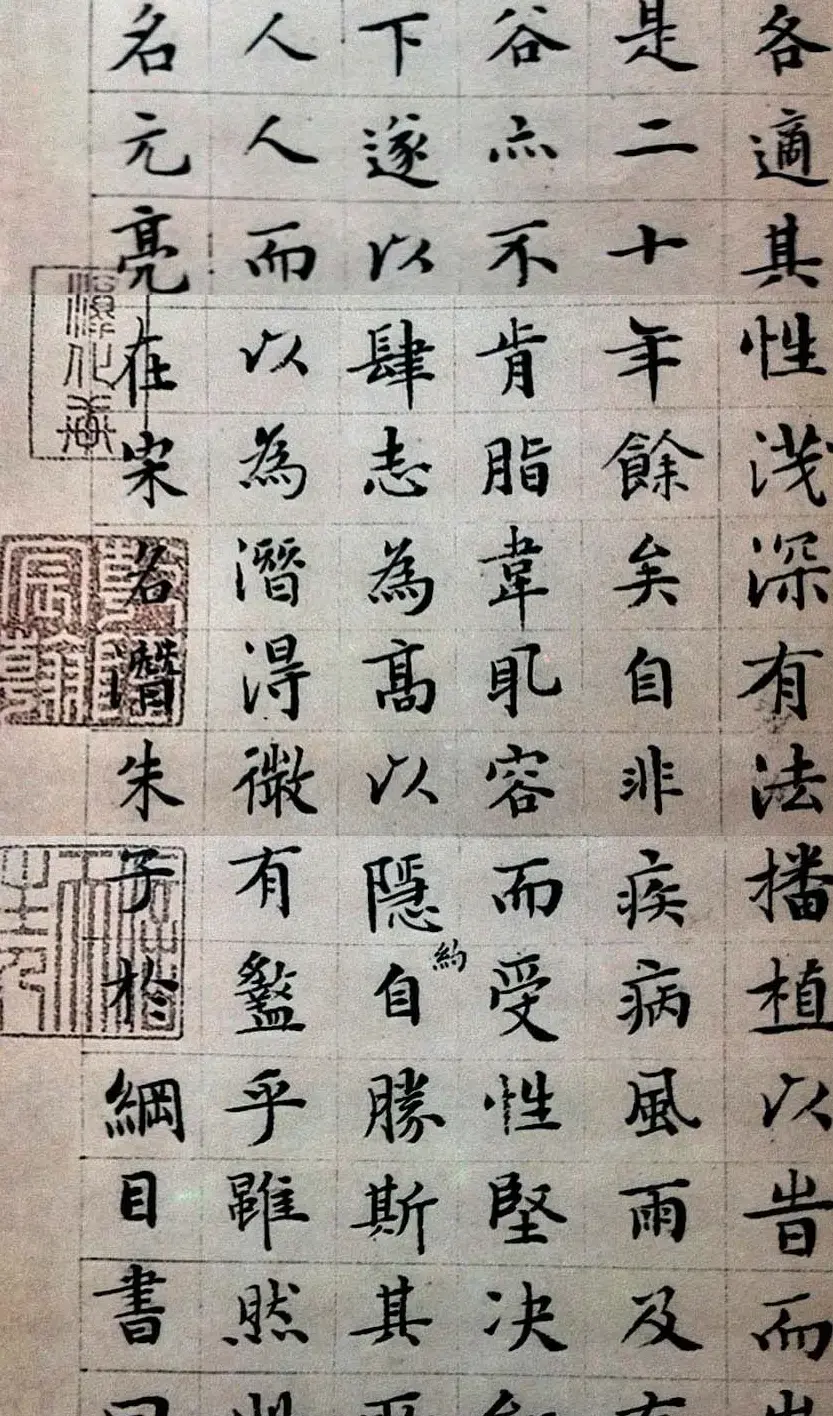 各適其性浅深有法播植以旹而
是二十年餘矣自非疾病風雨及有
谷亦不肯脂韋取容而受性堅决
下遂以肆志為高以隱約自勝斯其
人人而以為潛得微有盭乎雖然
名元亮在宋名潛朱子於綱目書